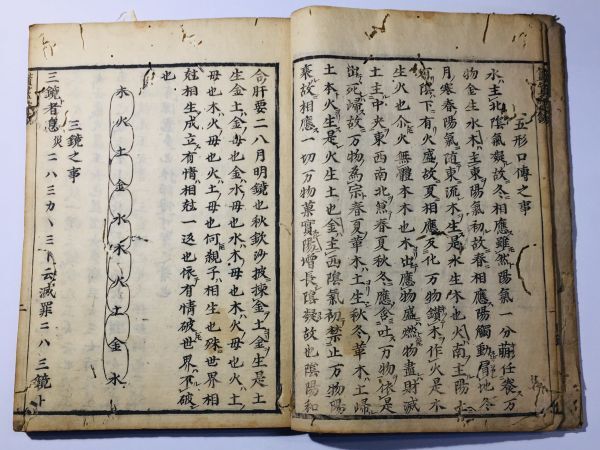 五形口傳之事
水主北陰氣凝故冬相應雖然陽氣一分萠任養万
物金生水木主東陽氣初故春相應陽觸動眉地冬
月寒春陽氣随東流木生是水生木也火南主陽
陰下有火盛故夏相應反化万物鑚木作火是木
生火也火無體本木也木出應物盛燃物盡則滅
土主中央東西南北無春夏秋冬應含吐万物依是
死歸故万物為宗春夏華木土生秋冬華木土歸
土本火生是火生土也金主西陰氣初禁止万物陽
衰故相應一切万物菓實陽增長陰凝故也陰陽和
合肝要二八月明鏡也秋欽沙披揀金土金生是土
生金土金母也金水母也水木母也木火母也火土
母也木火母也火土母也何親子相生也殊世界相
尅相生成立有情相尅一返也依有情破世界不破
也
木火土金水木火土金水
三鏡之事
三鏡者息災二八三カ、三下云滅罪二八三鏡ト